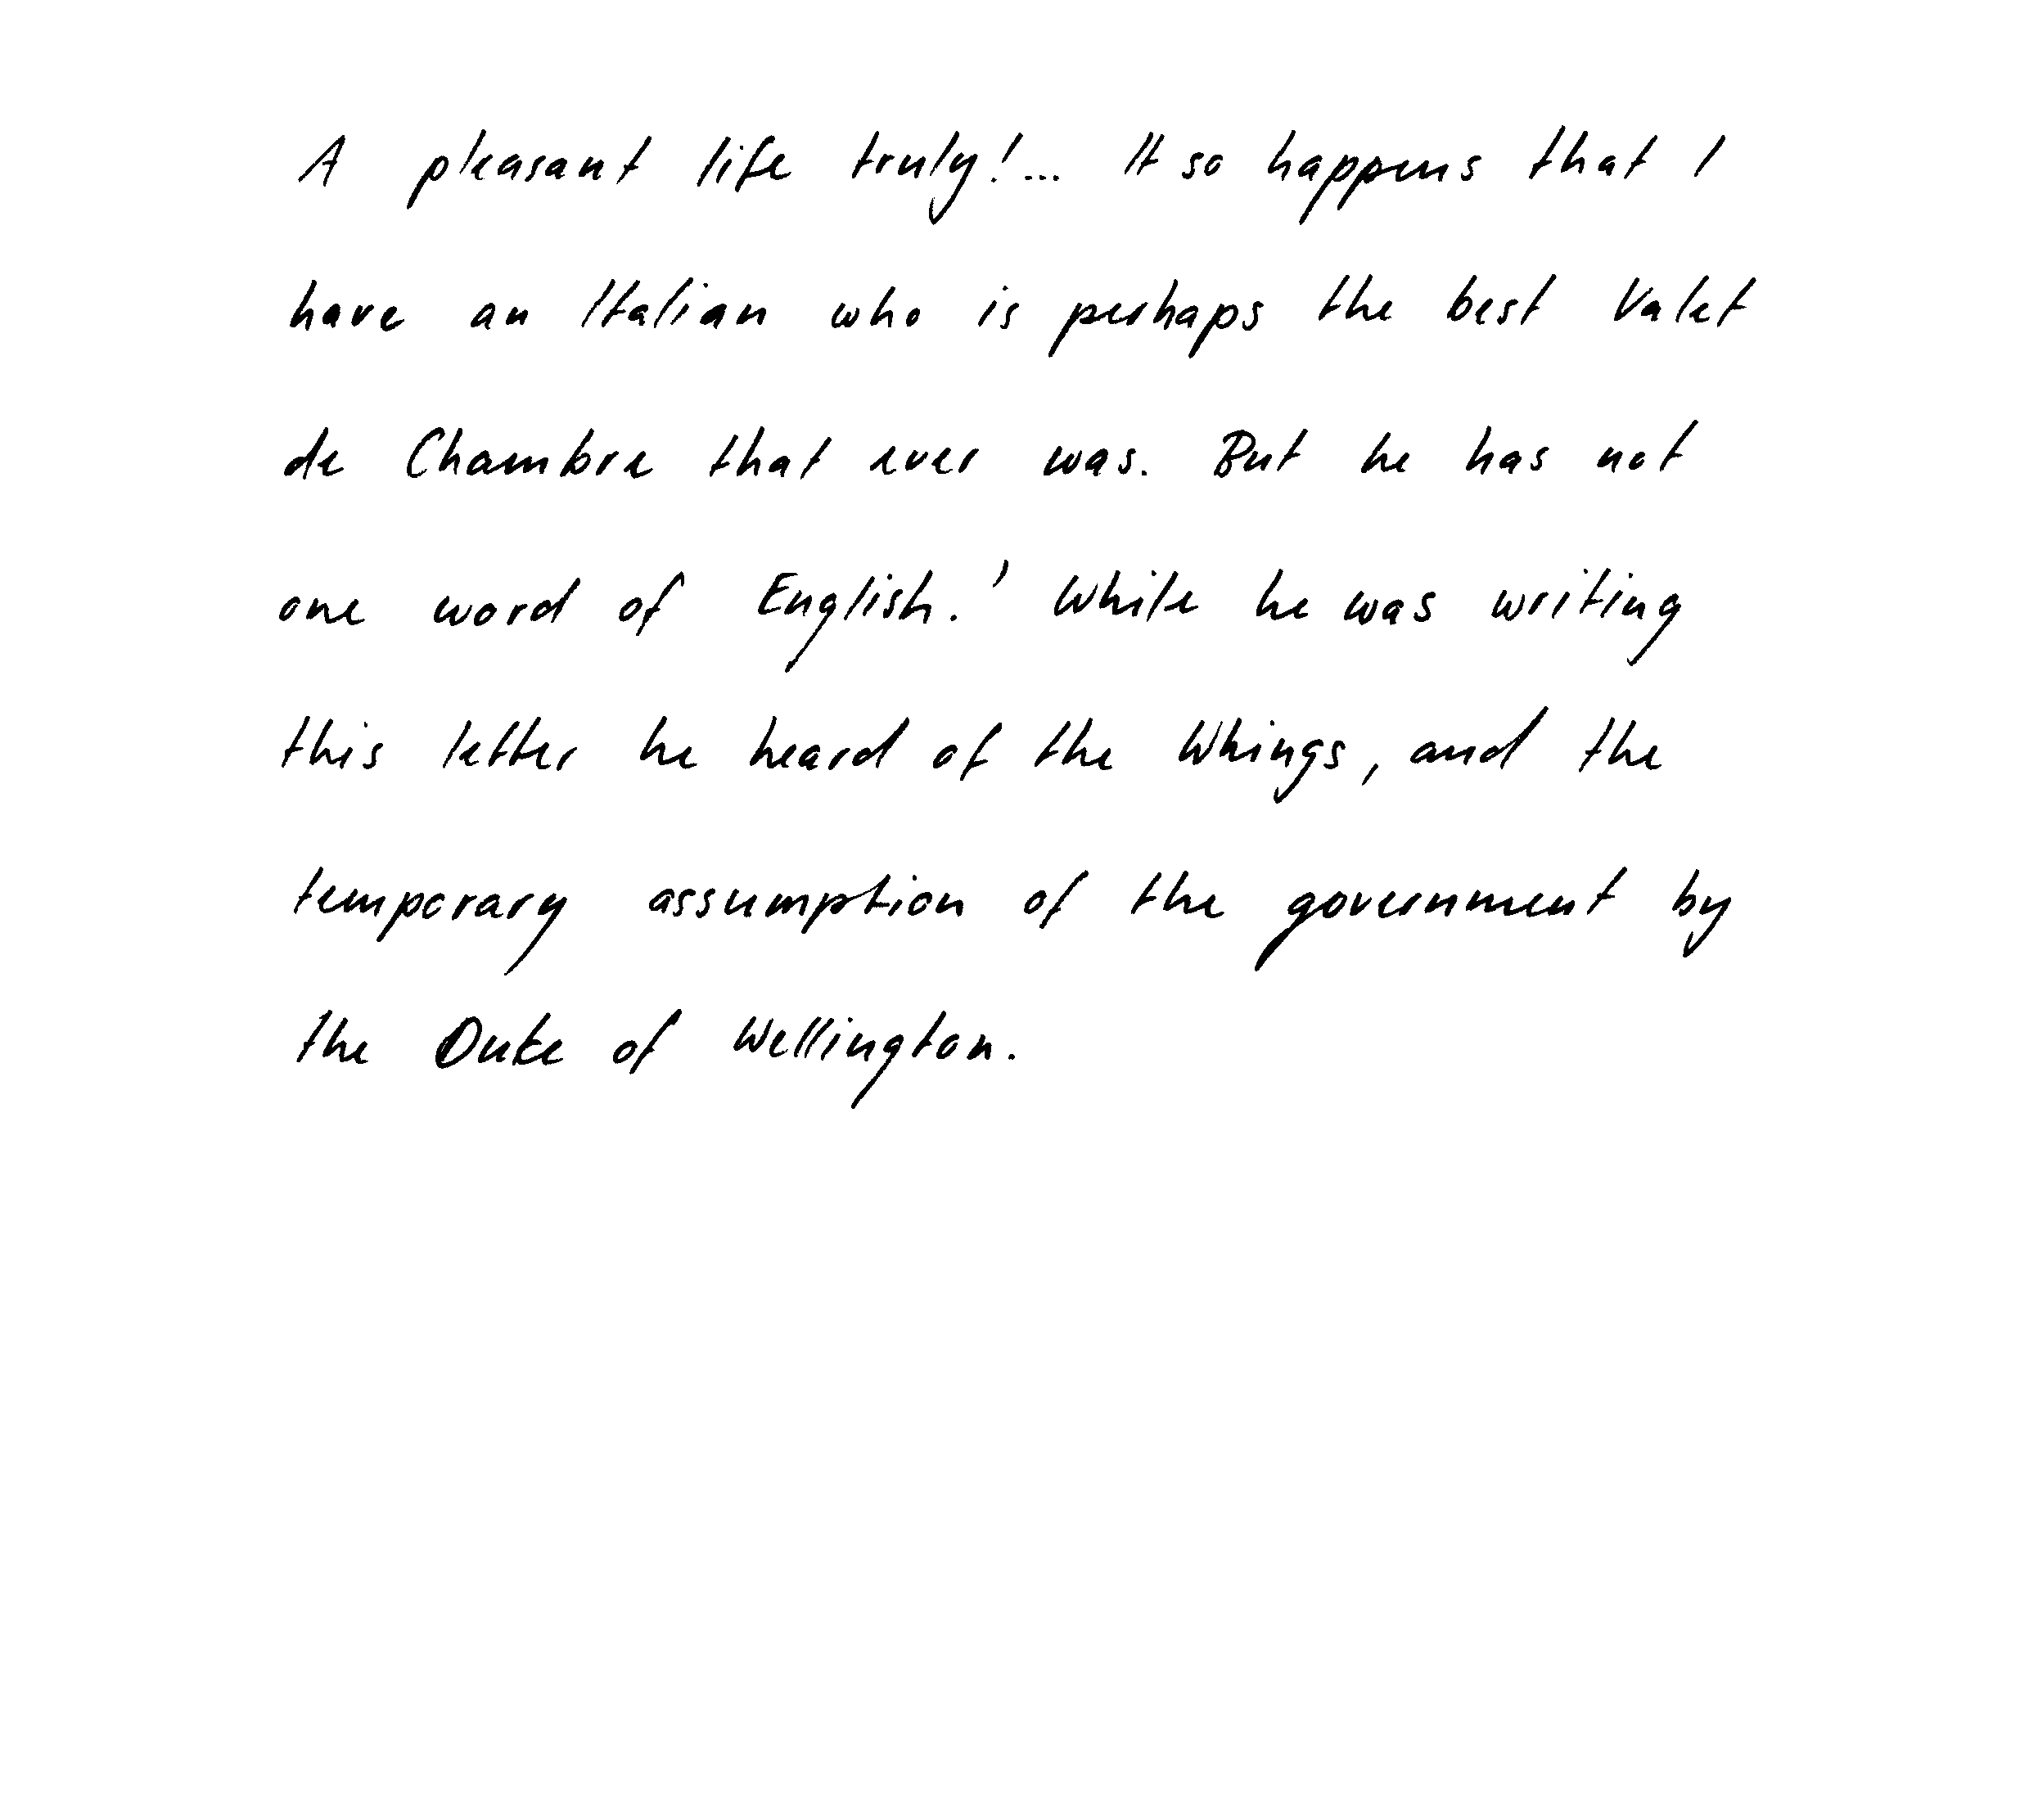 A pleasant life truly!... It so happens that I
have an Italian who is perhaps the best Valet
de Chambre that ever was. But he has not
one word of English.' While he was writing
this letter he heard of the Whings, and the
temporary assumption of the government by
the Duke of Wellington.